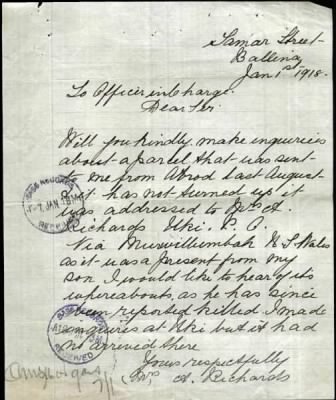 Tamar Street
Ballina
Jan 1st 1918
To Officer in Charge
Dear Sir
Will you kindly make inquiries
about a parcel that was sent
to me from Abrod last August
& it has not turned up it
was addressed to Mrs A.
Richards Uki. P. O.
Via Murwillumbah N S Wales
as it was a present from my
son I would like to hear of its
whereabouts, as he has since
been reported killed I made
inquiries at Uki but it had
not arrived there
Yours respectfully
Mrs A. Richards
BASE RECORDS
7 JAN 1918
RECEIVED
BASE RECORDS
RECEIVED